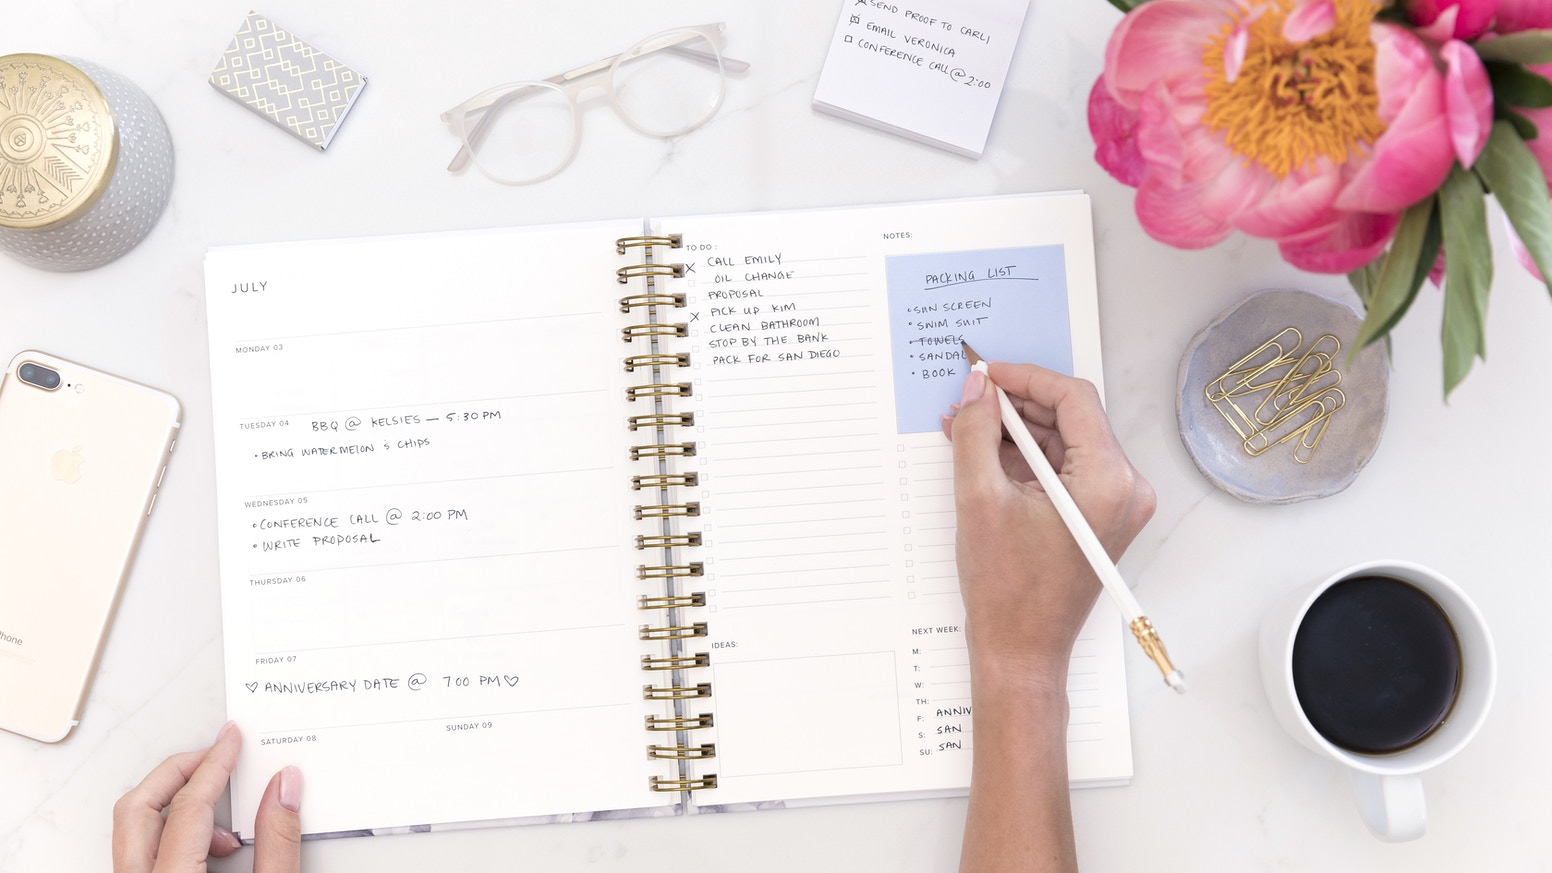 SEND PROOF TO CARLI
EMAIL VERONICA
CONFERENCE CALL @ 2:00
JULY
MONDAY 03
TUESDAY 04 BBQ @ KELSIES — 5:30 PM
• BRING WATERMELON & CHIPS
WEDNESDAY 05
• CONFERENCE CALL @ 2:00 PM
• WRITE PROPOSAL
THURSDAY 06
FRIDAY 07
♡ ANNIVERSARY DATE @ 7 00 PM ♡
SATURDAY 08
SUNDAY 09
TO DO :
X CALL EMILY
OIL CHANGE
PROPOSAL
X PICK UP KIM
CLEAN BATHROOM
STOP BY THE BANK
PACK FOR SAN DIEGO
NOTES:
PACKING LIST
• SUN SCREEN
• SWIM SUIT
• TOWELS
• SANDAL
• BOOK
IDEAS:
NEXT WEEK:
M:
T:
W:
TH:
F: ANNIV
S: SAN
SU: SAN
Phone